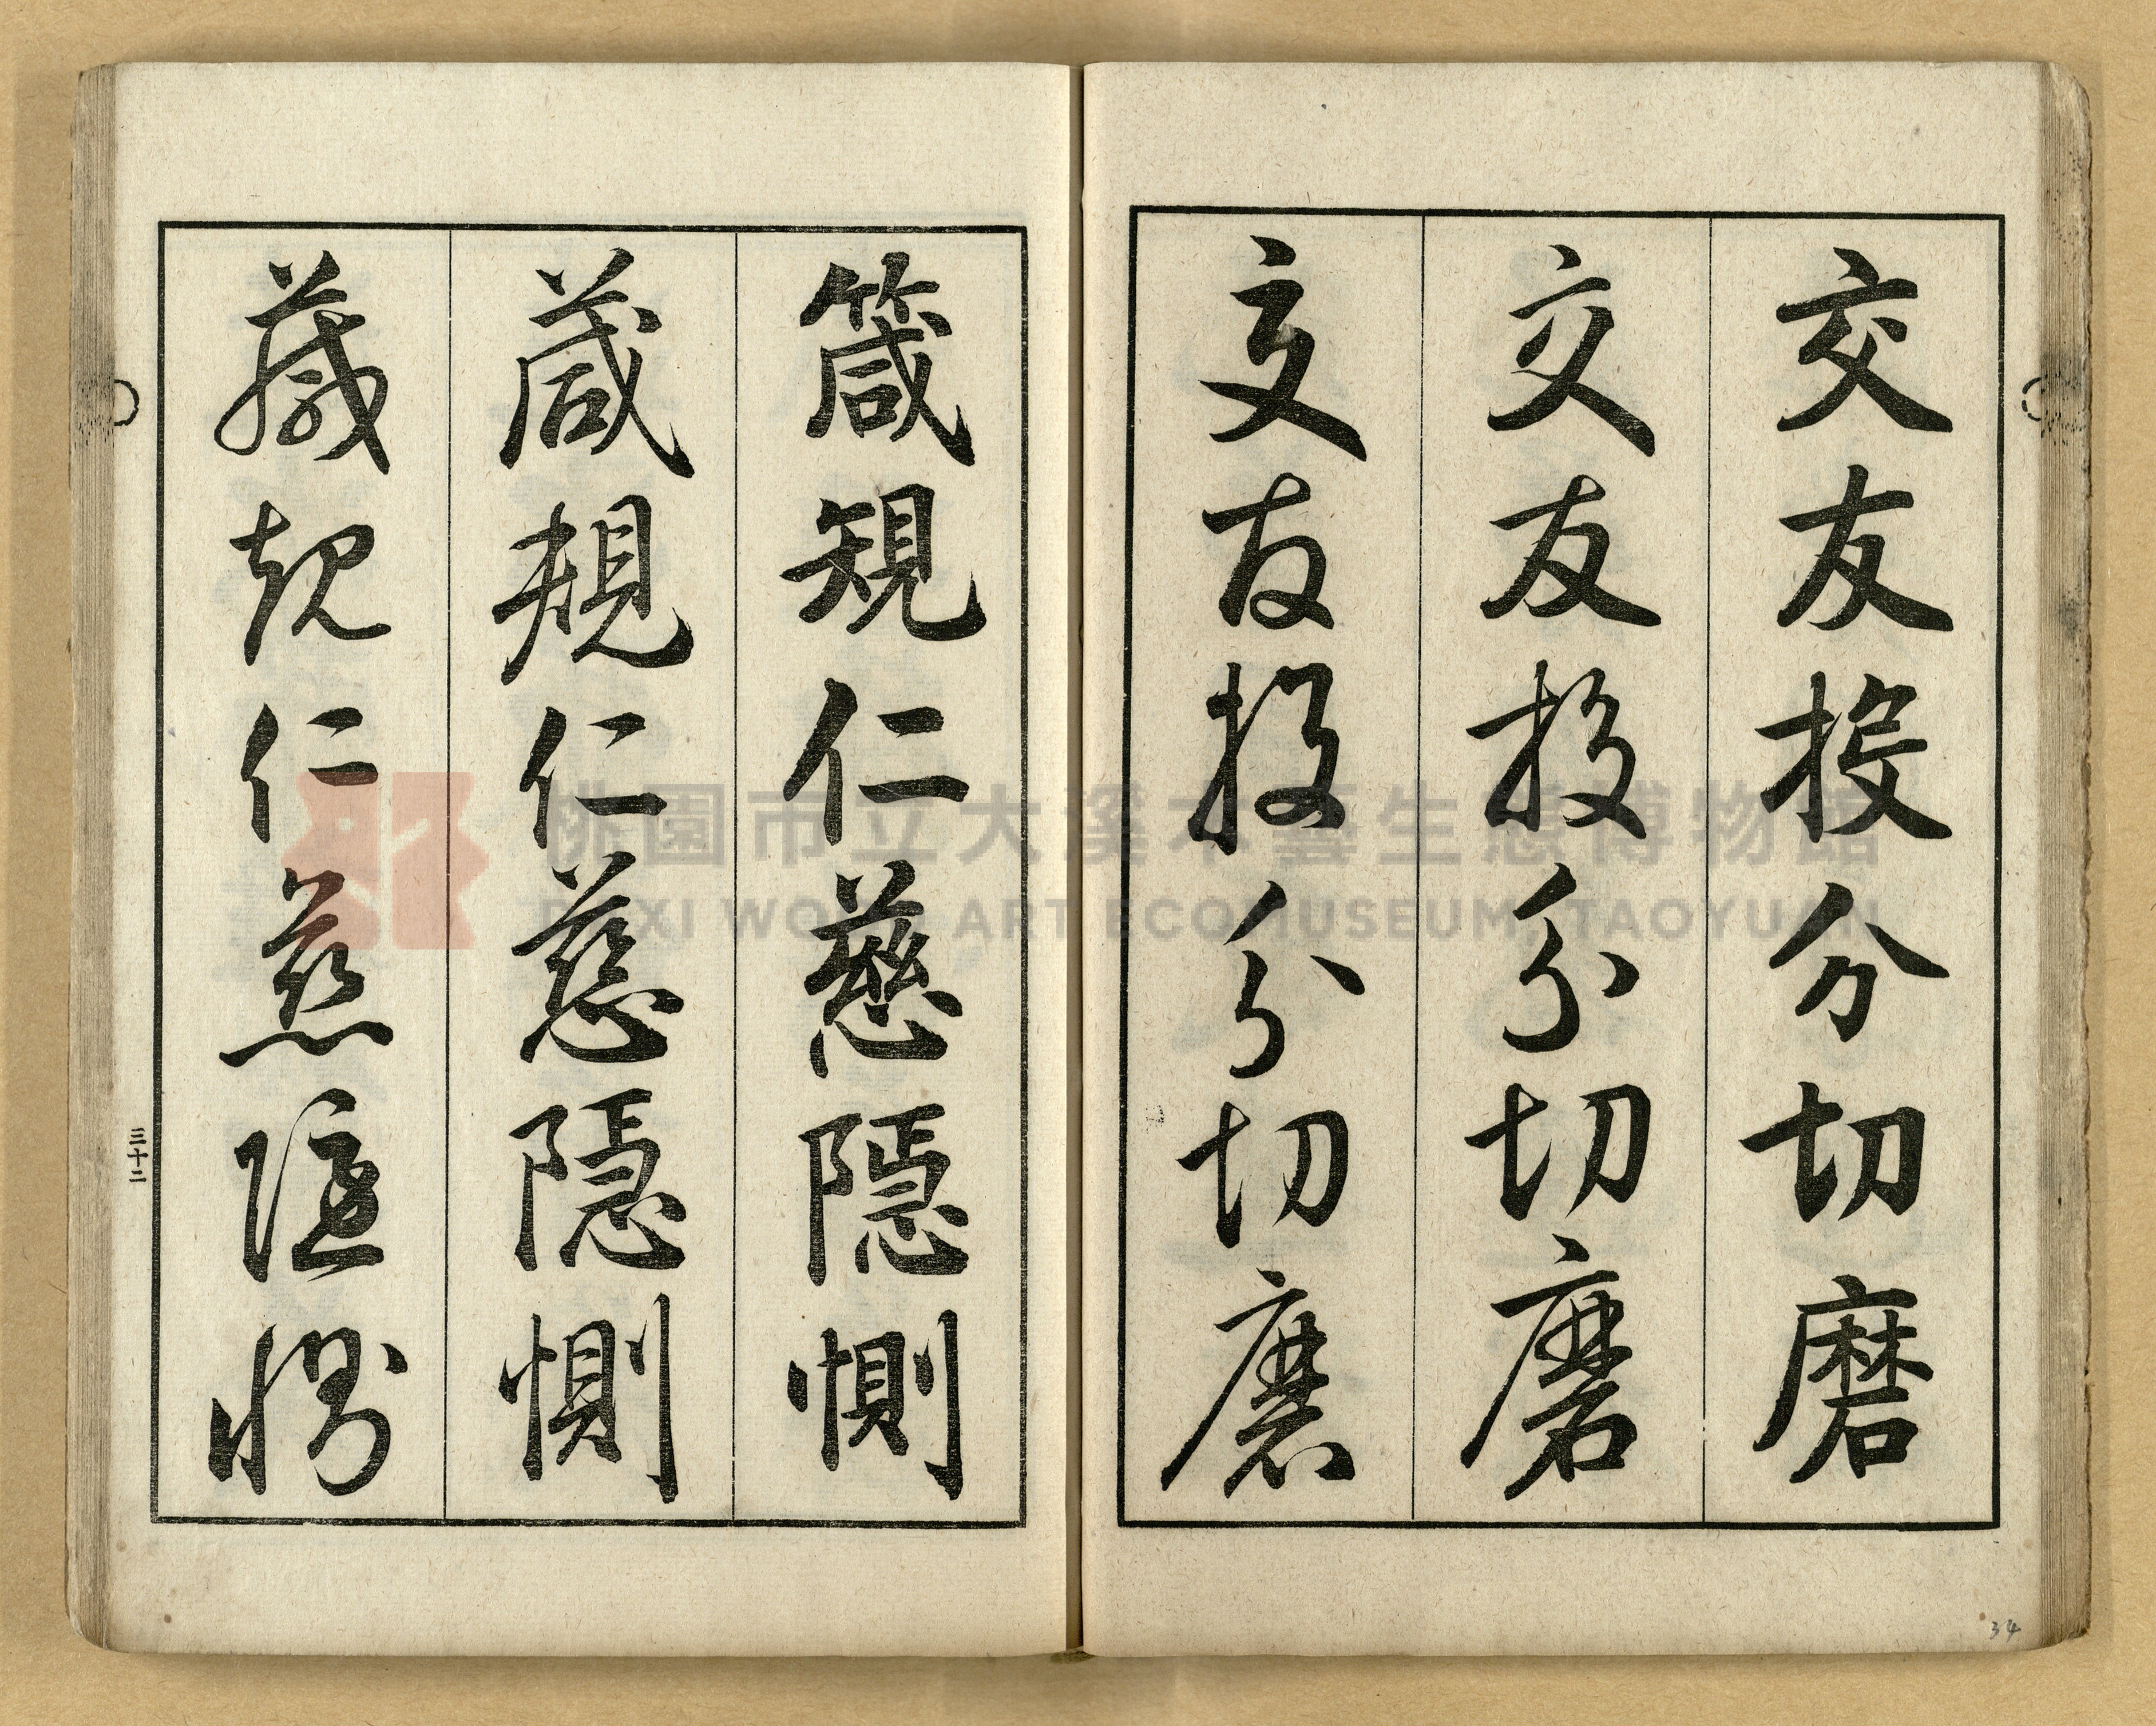 交友投分切磨
交友投分切磨
交友投分切磨
箴規仁慈隱惻
箴規仁慈隱惻
箴規仁慈隱惻
三十二
34
桃園市立大溪木藝生態博物館
DAXI WOOD ART ECOMUSEUM, TAOYUAN